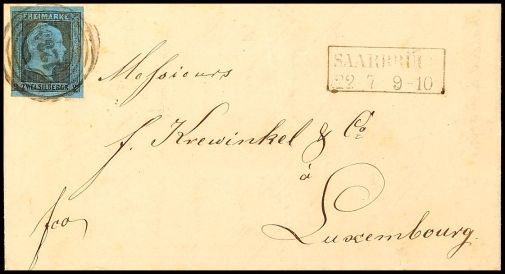 FREIMARKE
2 ZWEI SILBERGR. 2
SAARBRÜC
22 7 9-10
Messieurs
f. Krewinkel & Co
à
fco
Luxembourg.